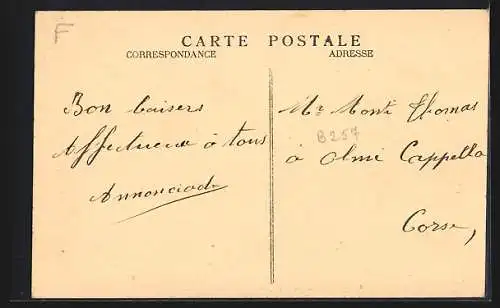 F
CARTE POSTALE
CORRESPONDANCE
ADRESSE
Bon baisers
Affectueux à tous
Annonciade
Mr Monti Thomas
B257
à Olmi Cappella
Corse,